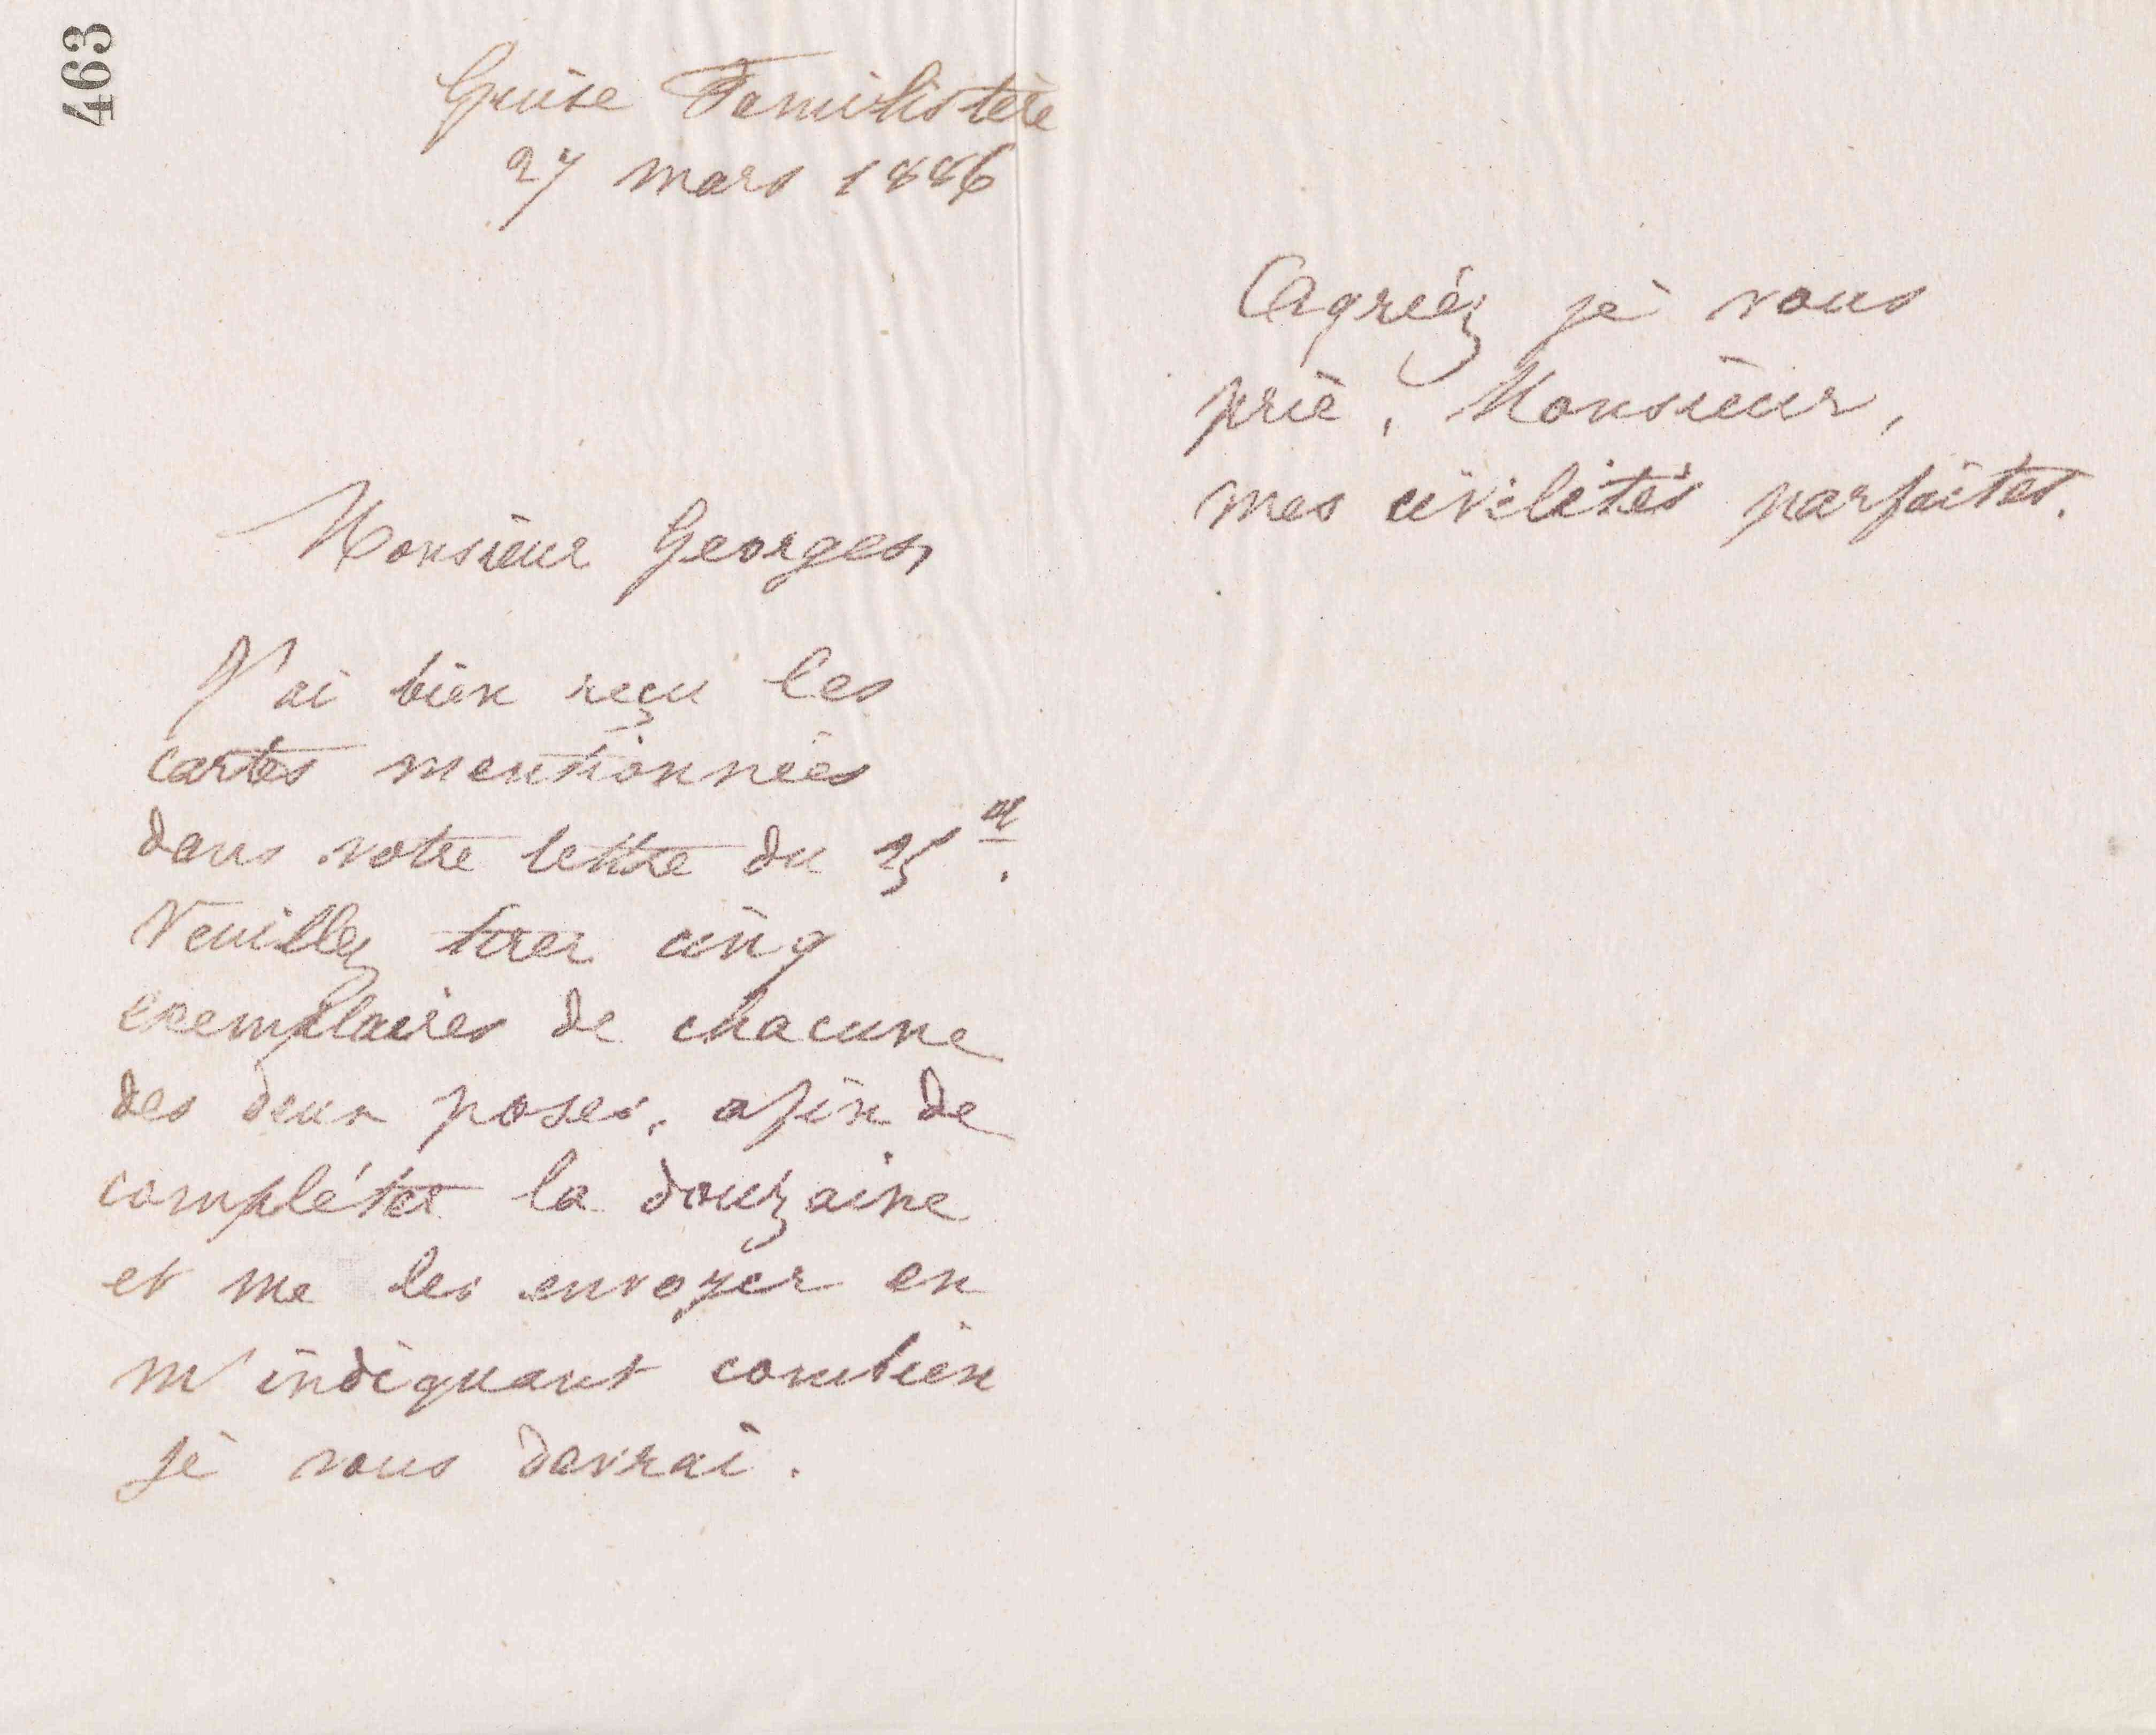 463
Guise Familistère
27 mars 1886
Monsieur Georges,
J'ai bien reçu les
cartes mentionnées
dans votre lettre du 25 ct.
Veuillez tirer cinq
exemplaires de chacune
des deux poses, afin de
compléter la douzaine
et me les envoyer en
m'indiquant combien
je vous devrai.
Agréez je vous
prie, Monsieur,
mes civilités parfaites.